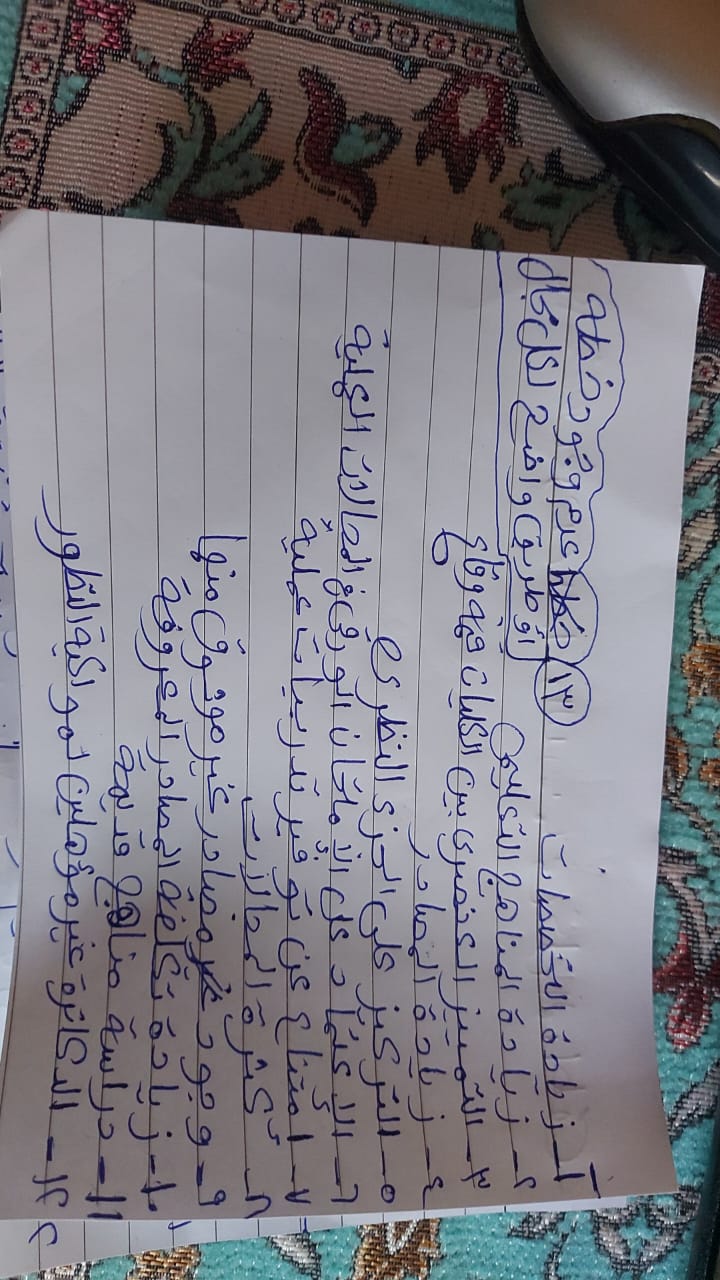 ١- زيادة التخصصات
٢- زيادة المناهج التعليمي
٣- التمييز العنصري بين الكليات قمه وقاع
٤- زيادة المصادر
٥- التركيز على الجزى النظرى
٦- الإعتماد على الإمتحان الورقى فى المجالات العملية
٧- امتناع عن توفير تدريبات عملية
٨- كثرة المجالات
٩- وجود مصادر غير موثوق منها
١٠- زيادة تكلفة المصادر المعروفة
١١- دراسة مناهج قديمة
١٢- الدكاترة غير مؤهلين لمواكبة التطور
١٣ عدم وجود خطه
أو طريق واضح لكل مجال